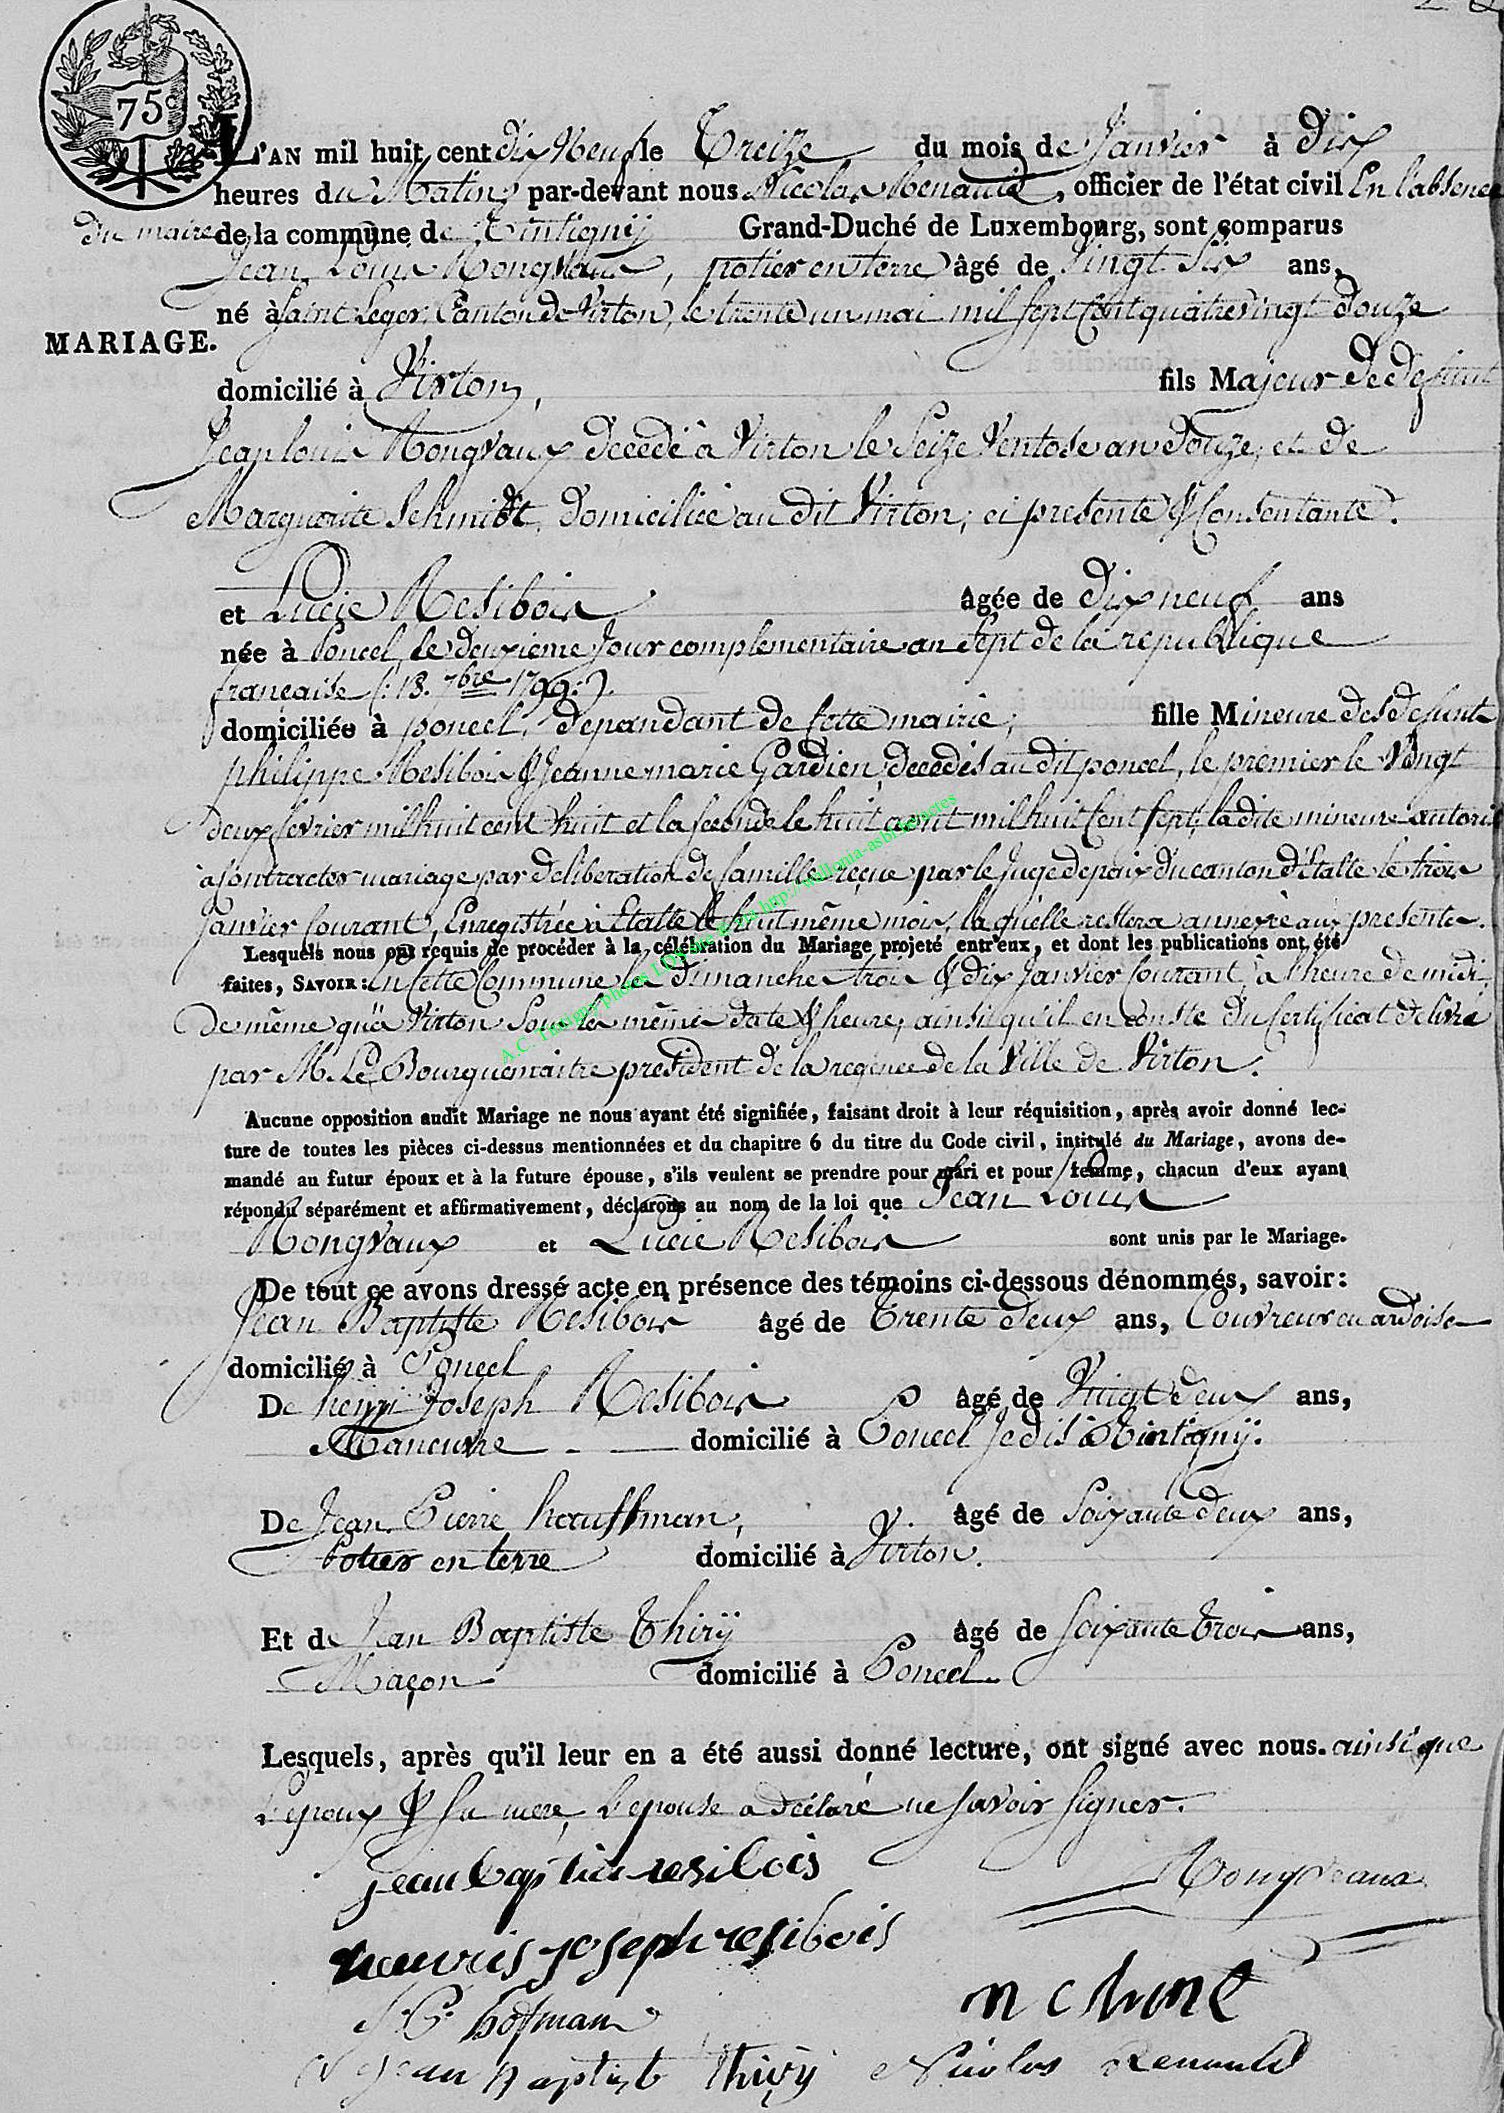 75c
L'AN mil huit cent dix Neuf le Treize du mois de Janvier à dix
heures du Matin, par-devant nous Nicolas Renauld, officier de l'état civil En l'absence
du maire de la commune de Tintignÿ Grand-Duché de Luxembourg, sont comparus
Jean Louis Mongvaux, potier en terre âgé de Vingt Six ans,
né à Saint Leger, Canton de Virton, le trente un mai mil Sept Cent quatre vingt douze
MARIAGE.
domicilié à Virton, fils Majeur de defunt
Jean louis Mongvaux decedé à Virton le Seize Ventose an douze, et de
Marguerite Schmidt, domiciliée au dit Virton, ci presente & Consentante.
et Lucie Resibois âgée de dix neuf ans
née à Poncel, le deuxieme Jour complementaire an Sept de la republique
française (: 18. 7bre 1799:).
domiciliée à poncel, dependant de Cette mairie, fille Mineure des defunts
philippe Resibois & Jeanne marie Gardien, decedés au dit poncel, le premier le Vingt
deux fevrier mil huit cent huit et la seconde le huit aout mil huit Cent Sept, la dite mineure autorisé
à Contracter mariage par deliberation de famille reçue par le Juge de paix du canton d'Etalle le trois
Janvier Courant, Enregistrée à Etalle le huit même mois, laquelle restera annexée aux presentes.
Lesquels nous ont requis de procéder à la célébration du Mariage projeté entr'eux, et dont les publications ont été
faites, SAVOIR: En Cette Commune les dimanche trois & dix Janvier Courant, à l'heure de midi,
De même qu'à Virton Sous les mêmes date & heure, ainsi qu'il en conste du Certificat delivré
par M. Le Bourguemaitre president de la regence de la Ville de Virton.
Aucune opposition audit Mariage ne nous ayant été signifiée, faisant droit à leur réquisition, après avoir donné lec-
ture de toutes les pièces ci-dessus mentionnées et du chapitre 6 du titre du Code civil, intitulé du Mariage, avons de-
mandé au futur époux et à la future épouse, s'ils veulent se prendre pour mari et pour femme, chacun d'eux ayant
répondu séparément et affirmativement, déclarons au nom de la loi que Jean Louis
Mongvaux et Lucie Resibois sont unis par le Mariage.
De tout ce avons dressé acte en présence des témoins ci-dessous dénommés, savoir:
Jean Baptiste Resibois âgé de Trente deux ans, Couvreur en ardoise
domicilié à Poncel
De henri Joseph Resibois âgé de Vingt deux ans,
Maneuvre domicilié à Poncel Jedis à Tintignÿ.
De Jean Pierre hauffman, âgé de Soixante deux ans,
Potier en terre domicilié à Virton.
Et de Jean Baptiste Thirÿ âgé de Soixante trois ans,
Maçon domicilié à Poncel.
Lesquels, après qu'il leur en a été aussi donné lecture, ont signé avec nous. ainsi que
L'epoux & Sa mere, L'epouse a déclaré ne Savoir Signer.
jean baptiste resibois
Mongvaux
hanris joseph resibois
J. P. hofman
Jean Baptist thirÿ
Nicolas Renauld
A.C. Tintigny photos
http://wallonia-asbl.be/actes